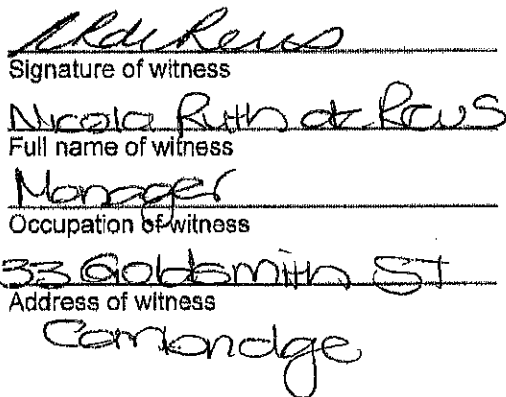 NRdeReus
Signature of witness
Nicola Ruth de Reus
Full name of witness
Manager
Occupation of witness
33 Goldsmith St
Address of witness
Cambridge